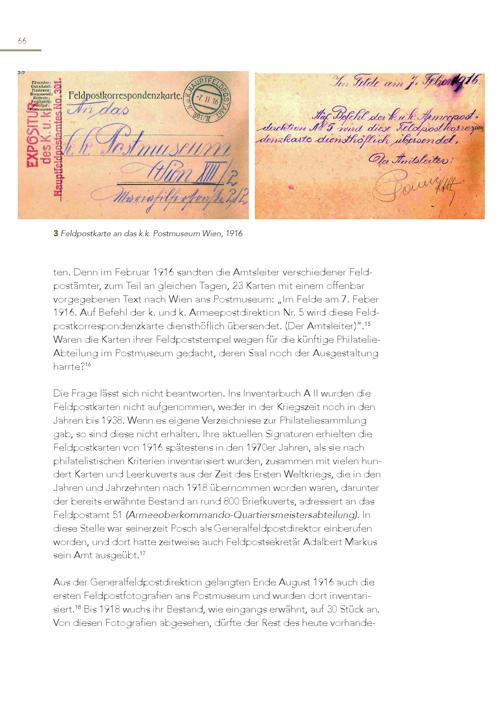 66
EXPOSITUR
des K. u. k.
Hauptfeldpostamtes No. 301.
Feldpostkorrespondenzkarte.
K.u.K. HAUPTFELDPOSTAMT
-7 II 16
An das
k. k. Postmuseum
Wien XIII/2
Im Felde am 7. Feber 1916
Auf Befehl der k. u. k. Armeepost-
direktion Nº 5 wird diese Feldpostkorrespon
denzkarte diensthöflich übersendet.
Der Amtsleiter:
3 Feldpostkarte an das k.k. Postmuseum Wien, 1916
ten. Denn im Februar 1916 sandten die Amtsleiter verschiedener Feld-
postämter, zum Teil an gleichen Tagen, 23 Karten mit einem offenbar
vorgegebenen Text nach Wien ans Postmuseum: „Im Felde am 7. Feber
1916. Auf Befehl der k. und k. Armeepostdirektion Nr. 5 wird diese Feld-
postkorrespondenzkarte diensthöflich übersendet. (Der Amtsleiter)“.15
Waren die Karten ihrer Feldpoststempel wegen für die künftige Philatelie-
Abteilung im Postmuseum gedacht, deren Saal noch der Ausgestaltung
harrte?16
Die Frage lässt sich nicht beantworten. Ins Inventarbuch A II wurden die
Feldpostkarten nicht aufgenommen, weder in der Kriegszeit noch in den
Jahren bis 1938. Wenn es eigene Verzeichnisse zur Philateliesammlung
gab, so sind diese nicht erhalten. Ihre aktuellen Signaturen erhielten die
Feldpostkarten von 1916 spätestens in den 1970er Jahren, als sie nach
philatelistischen Kriterien inventarisiert wurden, zusammen mit vielen hun-
dert Karten und Leerkuverts aus der Zeit des Ersten Weltkriegs, die in den
Jahren und Jahrzehnten nach 1918 übernommen worden waren, darunter
der bereits erwähnte Bestand an rund 800 Briefkuverts, adressiert an das
Feldpostamt 51 (Armeeoberkommando-Quartiersmeistersabteilung). In
diese Stelle war seinerzeit Posch als Generalfeldpostdirektor einberufen
worden, und dort hatte zeitweise auch Feldpostsekretär Adalbert Markus
sein Amt ausgeübt.17
Aus der Generalfeldpostdirektion gelangten Ende August 1916 auch die
ersten Feldpostfotografien ans Postmuseum und wurden dort inventari-
siert.18 Bis 1918 wuchs ihr Bestand, wie eingangs erwähnt, auf 30 Stück an.
Von diesen Fotografien abgesehen, dürfte der Rest des heute vorhande-